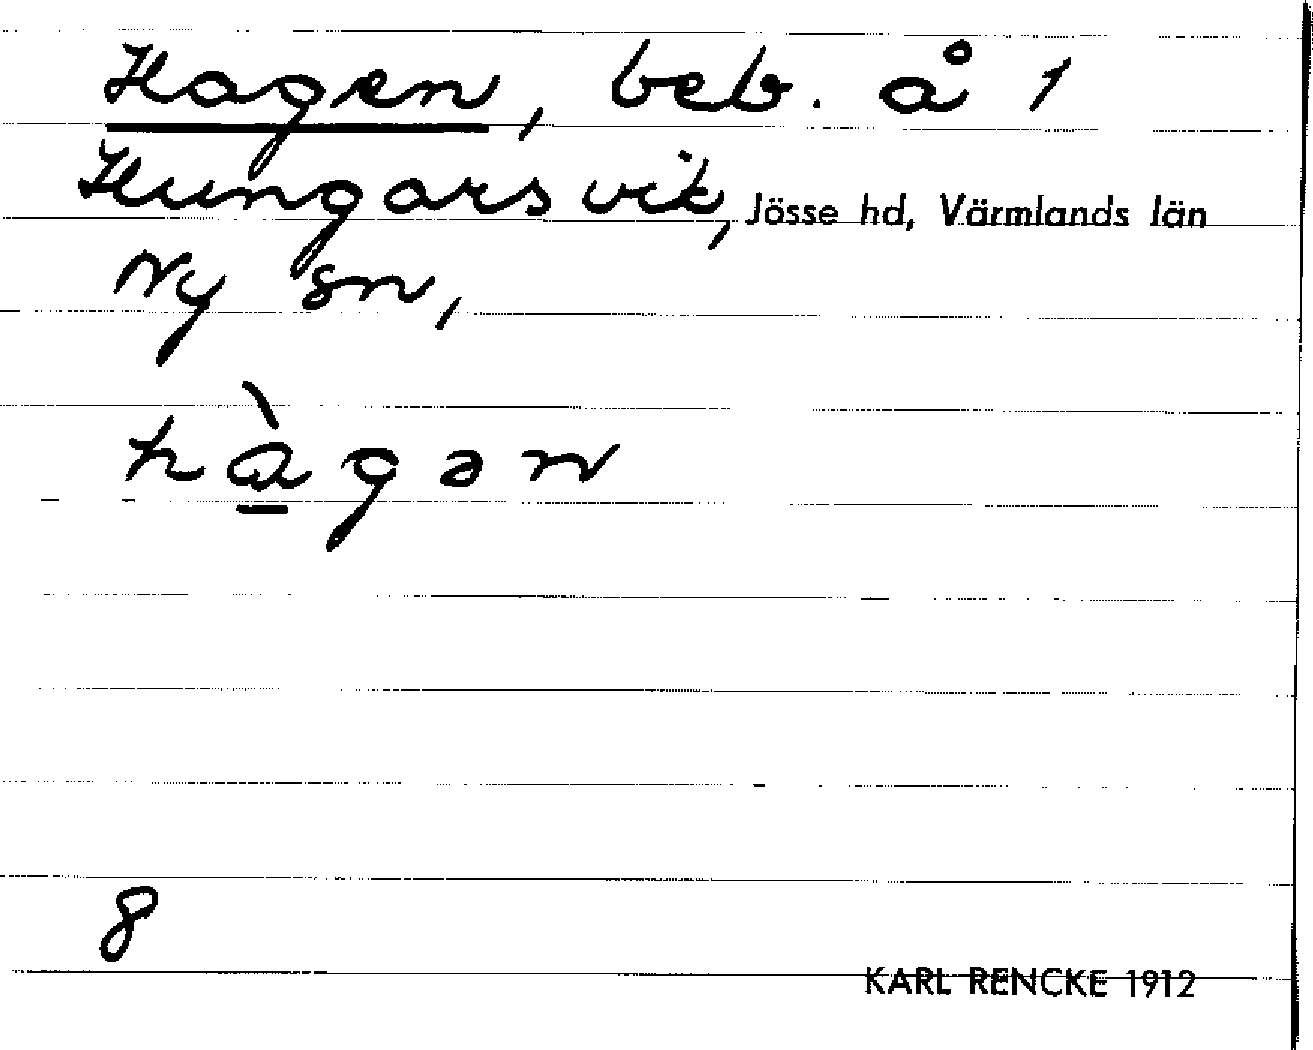 Hagen, beb. å 1
Hungarsvik, Jösse hd, Värmlands län
Ny sn,
hàgan
8
KARL RENCKE 1912